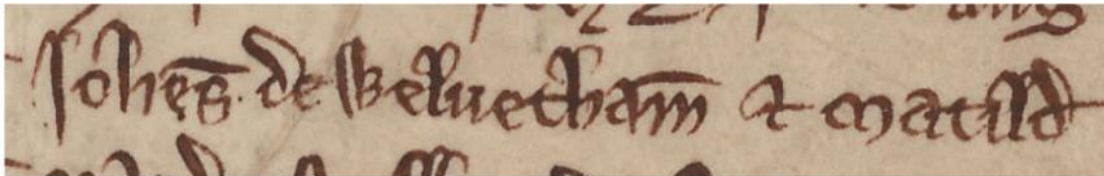 Joh̅es de Weluetham̅ & Matild